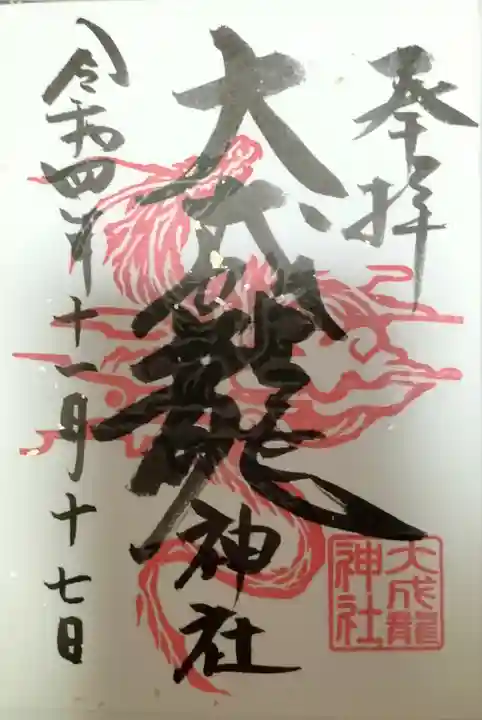 奉拝
大成龍神社
令和四年十一月十七日
大成龍
神社